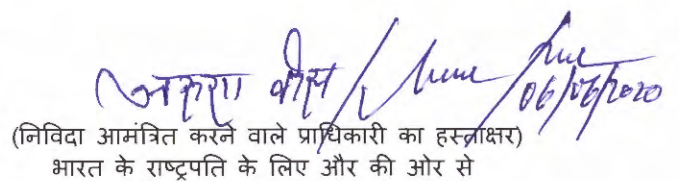 06/06/2020
(निविदा आमंत्रित करने वाले प्राधिकारी का हस्ताक्षर)
भारत के राष्ट्रपति के लिए और की ओर से